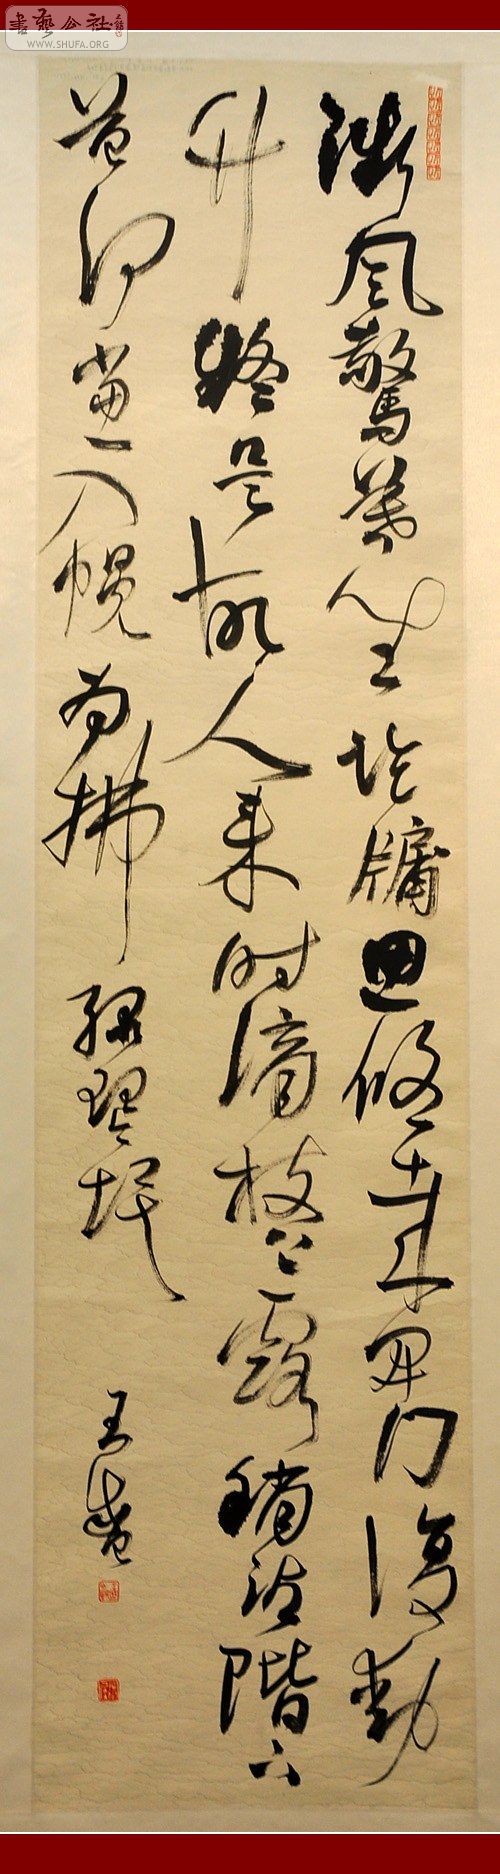 書藝公社
WWW.SHUFA.ORG
微風驚暮坐臨牖思悠哉開門復動
竹疑是故人來時滴枝上露稍沾階下
苔何當一入幌為拂綠琴埃
王